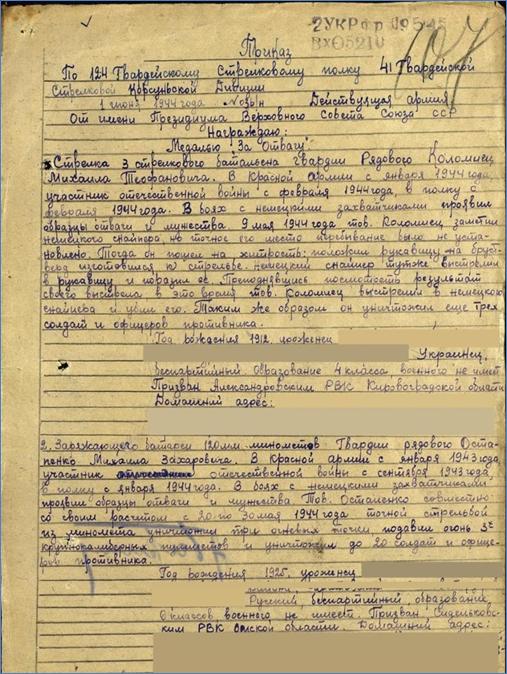 2 УКР фр
Вх05210
107
Приказ
По 124 Гвардейскому Стрелковому полку 41 Гвардейской
Стрелковой Корсуньской Дивизии
1 июня 1944 года Действующая армия
От имени Президиума Верховного Совета Союза ССР
Награждаю:
Медалью "За Отвагу"
Стрелка 3 стрелкового батальона гвардии Рядового Коломиец
Михаила Теофановича. В Красной армии с января 1944 года,
участник отечественной войны с февраля 1944 года, в полку с
февраля 1944 года. В боях с немецкими захватчиками проявил
образцы отваги и мужества 9 мая 1944 года тов. Коломиец заметил
немецкого снайпера, но точное его место пребывание было не уста-
новлено. Тогда он пошел на хитрость: положил рукавицу на бруст-
вер изготовился к стрельбе. немецкий снайпер тутже выстрелил
в рукавицу и поразил её. Преподнявшись посмотреть результат
своего выстрела в это время тов. Коломиец выстрелил в немецкого
снайпера и убил его. Таким же образом он уничтожил еще трех
солдат и офицеров противника.
Год рождения 1912, уроженец
Украинец,
беспартийный. Образование 4 класса военного не имет
Призван Александровским РВК Кировоградской области
Домашний адрес:
2. Заряжающего батареи 120 мм минометов Гвардии рядового Оста-
пенко Михаила Захаровича. В Красной армии с января 1943 года,
участник отечественной войны с сентября 1943 года,
в полку с января 1944 года. В боях с немецкими захватчиками
проявил образцы отваги и мужества. Тов. Остапенко совместно
со своим расчетом с 20 по 30 мая 1944 года точной стрельбой
из миномета уничтожил три огневых точки подавил огонь 3х
крупнокалиберных пулеметов и уничтожил до 20 солдат и офице-
ров противника.
Год рождения 1925, уроженец
Русский, беспартийный, образование
6 классов, военного не имеет. Призван
ским РВК Омской области. Домашний адрес: